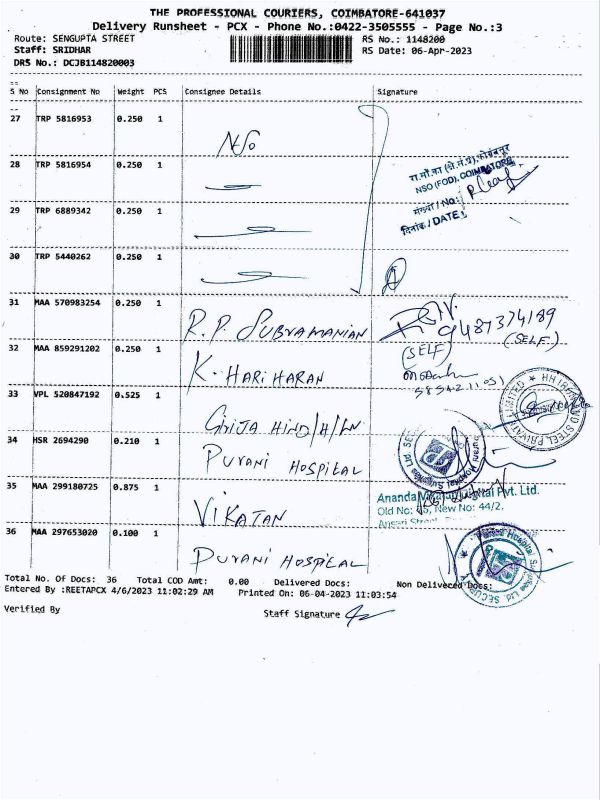 THE PROFESSIONAL COURIERS, COIMBATORE-641037
Delivery Runsheet - PCX - Phone No.:0422-3505555 - Page No.:3
Route: SENGUPTA STREET
RS No.: 1148200
Staff: SRIDHAR
RS Date: 06-Apr-2023
DRS No.: DCJB114820003
S No Consignment No Weight PCS Consignee Details Signature
27 TRP 5816953 0.250 1
NSO
28 TRP 5816954 0.250 1
NSO (FOD), COIMBATORE
संख्या / No:
दिनांक / DATE
29 TRP 6889342 0.250 1
30 TRP 5440262 0.250 1
31 MAA 570983254 0.250 1
R.P. SUBRAMANIAN
9487374189
(SELF)
32 MAA 859291202 0.250 1
K. HARI HARAN
(SELF)
33 VPL 520847192 0.525 1
GRIJA HIND/H/LN
34 HSR 2694290 0.210 1
PURANI HOSPITAL
35 MAA 299180725 0.875 1
VIKATAN
Ananda Vikatan Digital Pvt. Ltd.
Old No: 45, New No: 44/2,
36 MAA 297653020 0.100 1
PURANI HOSPITAL
Total No. Of Docs: 36 Total COD Amt: 0.00 Delivered Docs: Non Delivered Docs:
Entered By :REETAPCX 4/6/2023 11:02:29 AM Printed On: 06-04-2023 11:03:54
Verified By
Staff Signature